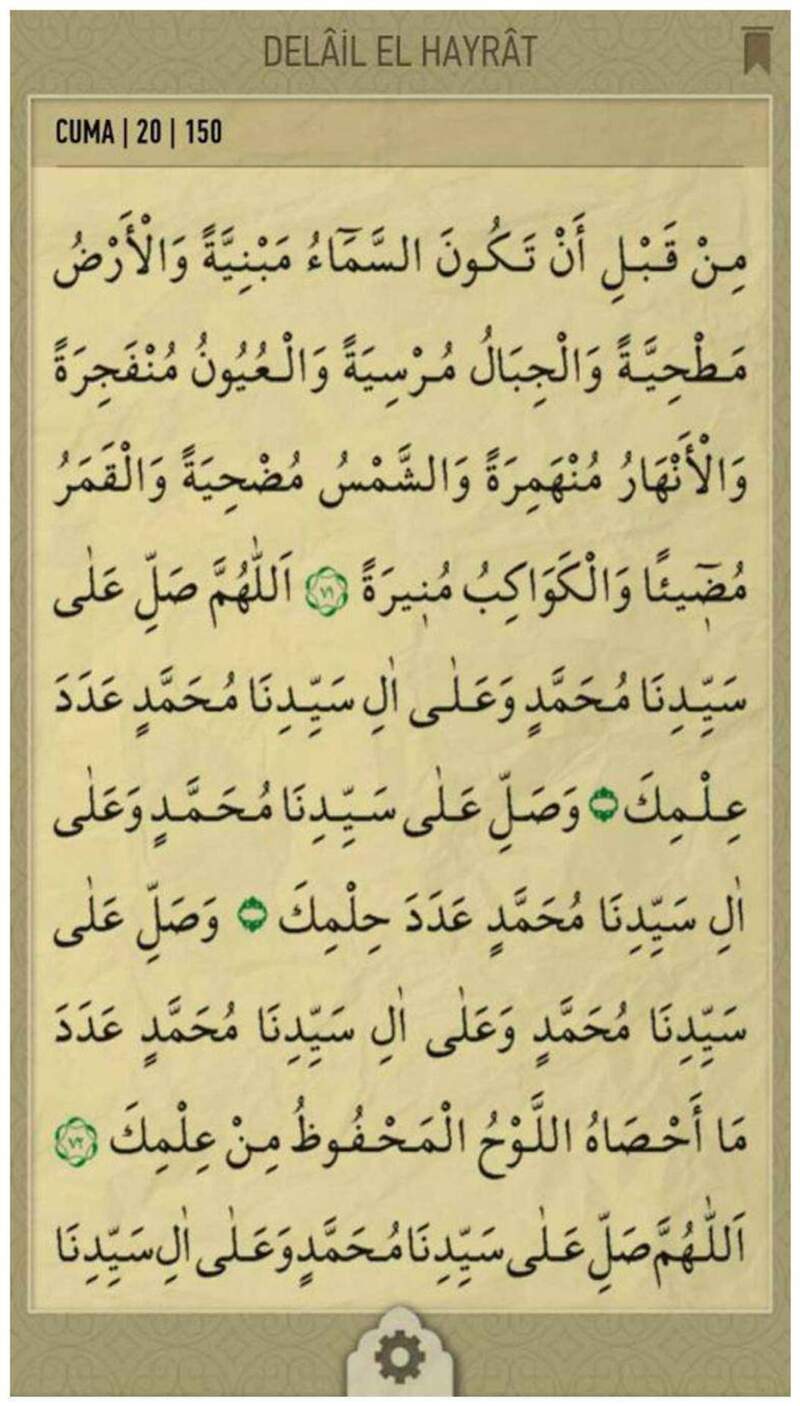 DELÂİL EL HAYRÂT
CUMA | 20 | 150
مِنْ قَبْلِ أَنْ تَكُونَ السَّمَٓاءُ مَبْنِيَّةً وَالْأَرْضُ
مَطْحِيَّةً وَالْجِبَالُ مُرْسِيَةً وَالْعُيُونُ مُنْفَجِرَةً
وَالْأَنْهَارُ مُنْهَمِرَةً وَالشَّمْسُ مُضْحِيَةً وَالْقَمَرُ
مُضٓيئًا وَالْكَوَاكِبُ مُنيرَةً ﴿٧١﴾ اَللّٰهُمَّ صَلِّ عَلٰى
سَيِّدِنَا مُحَمَّدٍ وَعَلٰى اٰلِ سَيِّدِنَا مُحَمَّدٍ عَدَدَ
عِلْمِكَ وَصَلِّ عَلٰى سَيِّدِنَا مُحَمَّدٍ وَعَلٰى
اٰلِ سَيِّدِنَا مُحَمَّدٍ عَدَدَ حِلْمِكَ وَصَلِّ عَلٰى
سَيِّدِنَا مُحَمَّدٍ وَعَلٰى اٰلِ سَيِّدِنَا مُحَمَّدٍ عَدَدَ
مَا أَحْصَاهُ اللَّوْحُ الْمَحْفُوظُ مِنْ عِلْمِكَ ﴿٧٢﴾
اَللّٰهُمَّ صَلِّ عَلٰى سَيِّدِنَا مُحَمَّدٍ وَعَلٰى اٰلِ سَيِّدِنَا